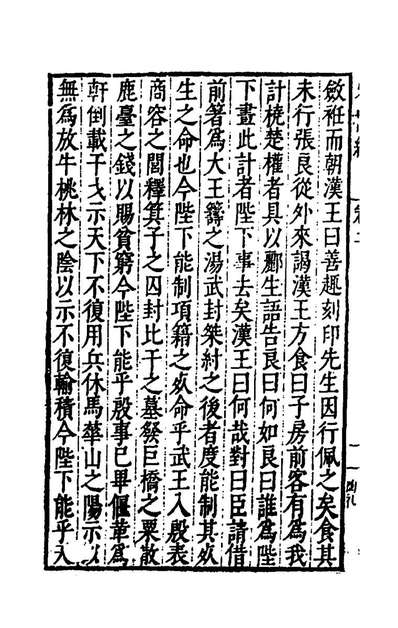 斂袵而朝漢王曰善趣刻印先生因行佩之矣食其
未行張良從外來謁漢王方食曰子房前客有為我
計橈楚權者具以酈生語告良曰何如良曰誰為陛
下畫此計者陛下事去矣漢王曰何哉對曰臣請借
前箸為大王籌之湯武封桀紂之後者度能制其死
生之命也今陛下能制項籍之死命乎武王入殷表
商容之閭釋箕子之囚封比干之墓發巨橋之粟散
鹿臺之錢以賜貧窮今陛下能乎殷事已畢偃革為
軒倒載干戈示天下不復用兵休馬華山之陽示以
無為放牛桃林之陰以示不復輸積今陛下能乎入